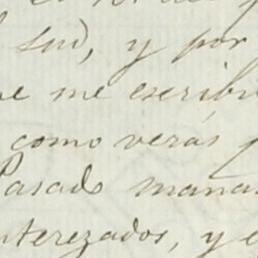 sud, y por
me escribi
como verás
Pasado maña
nterezados, y e